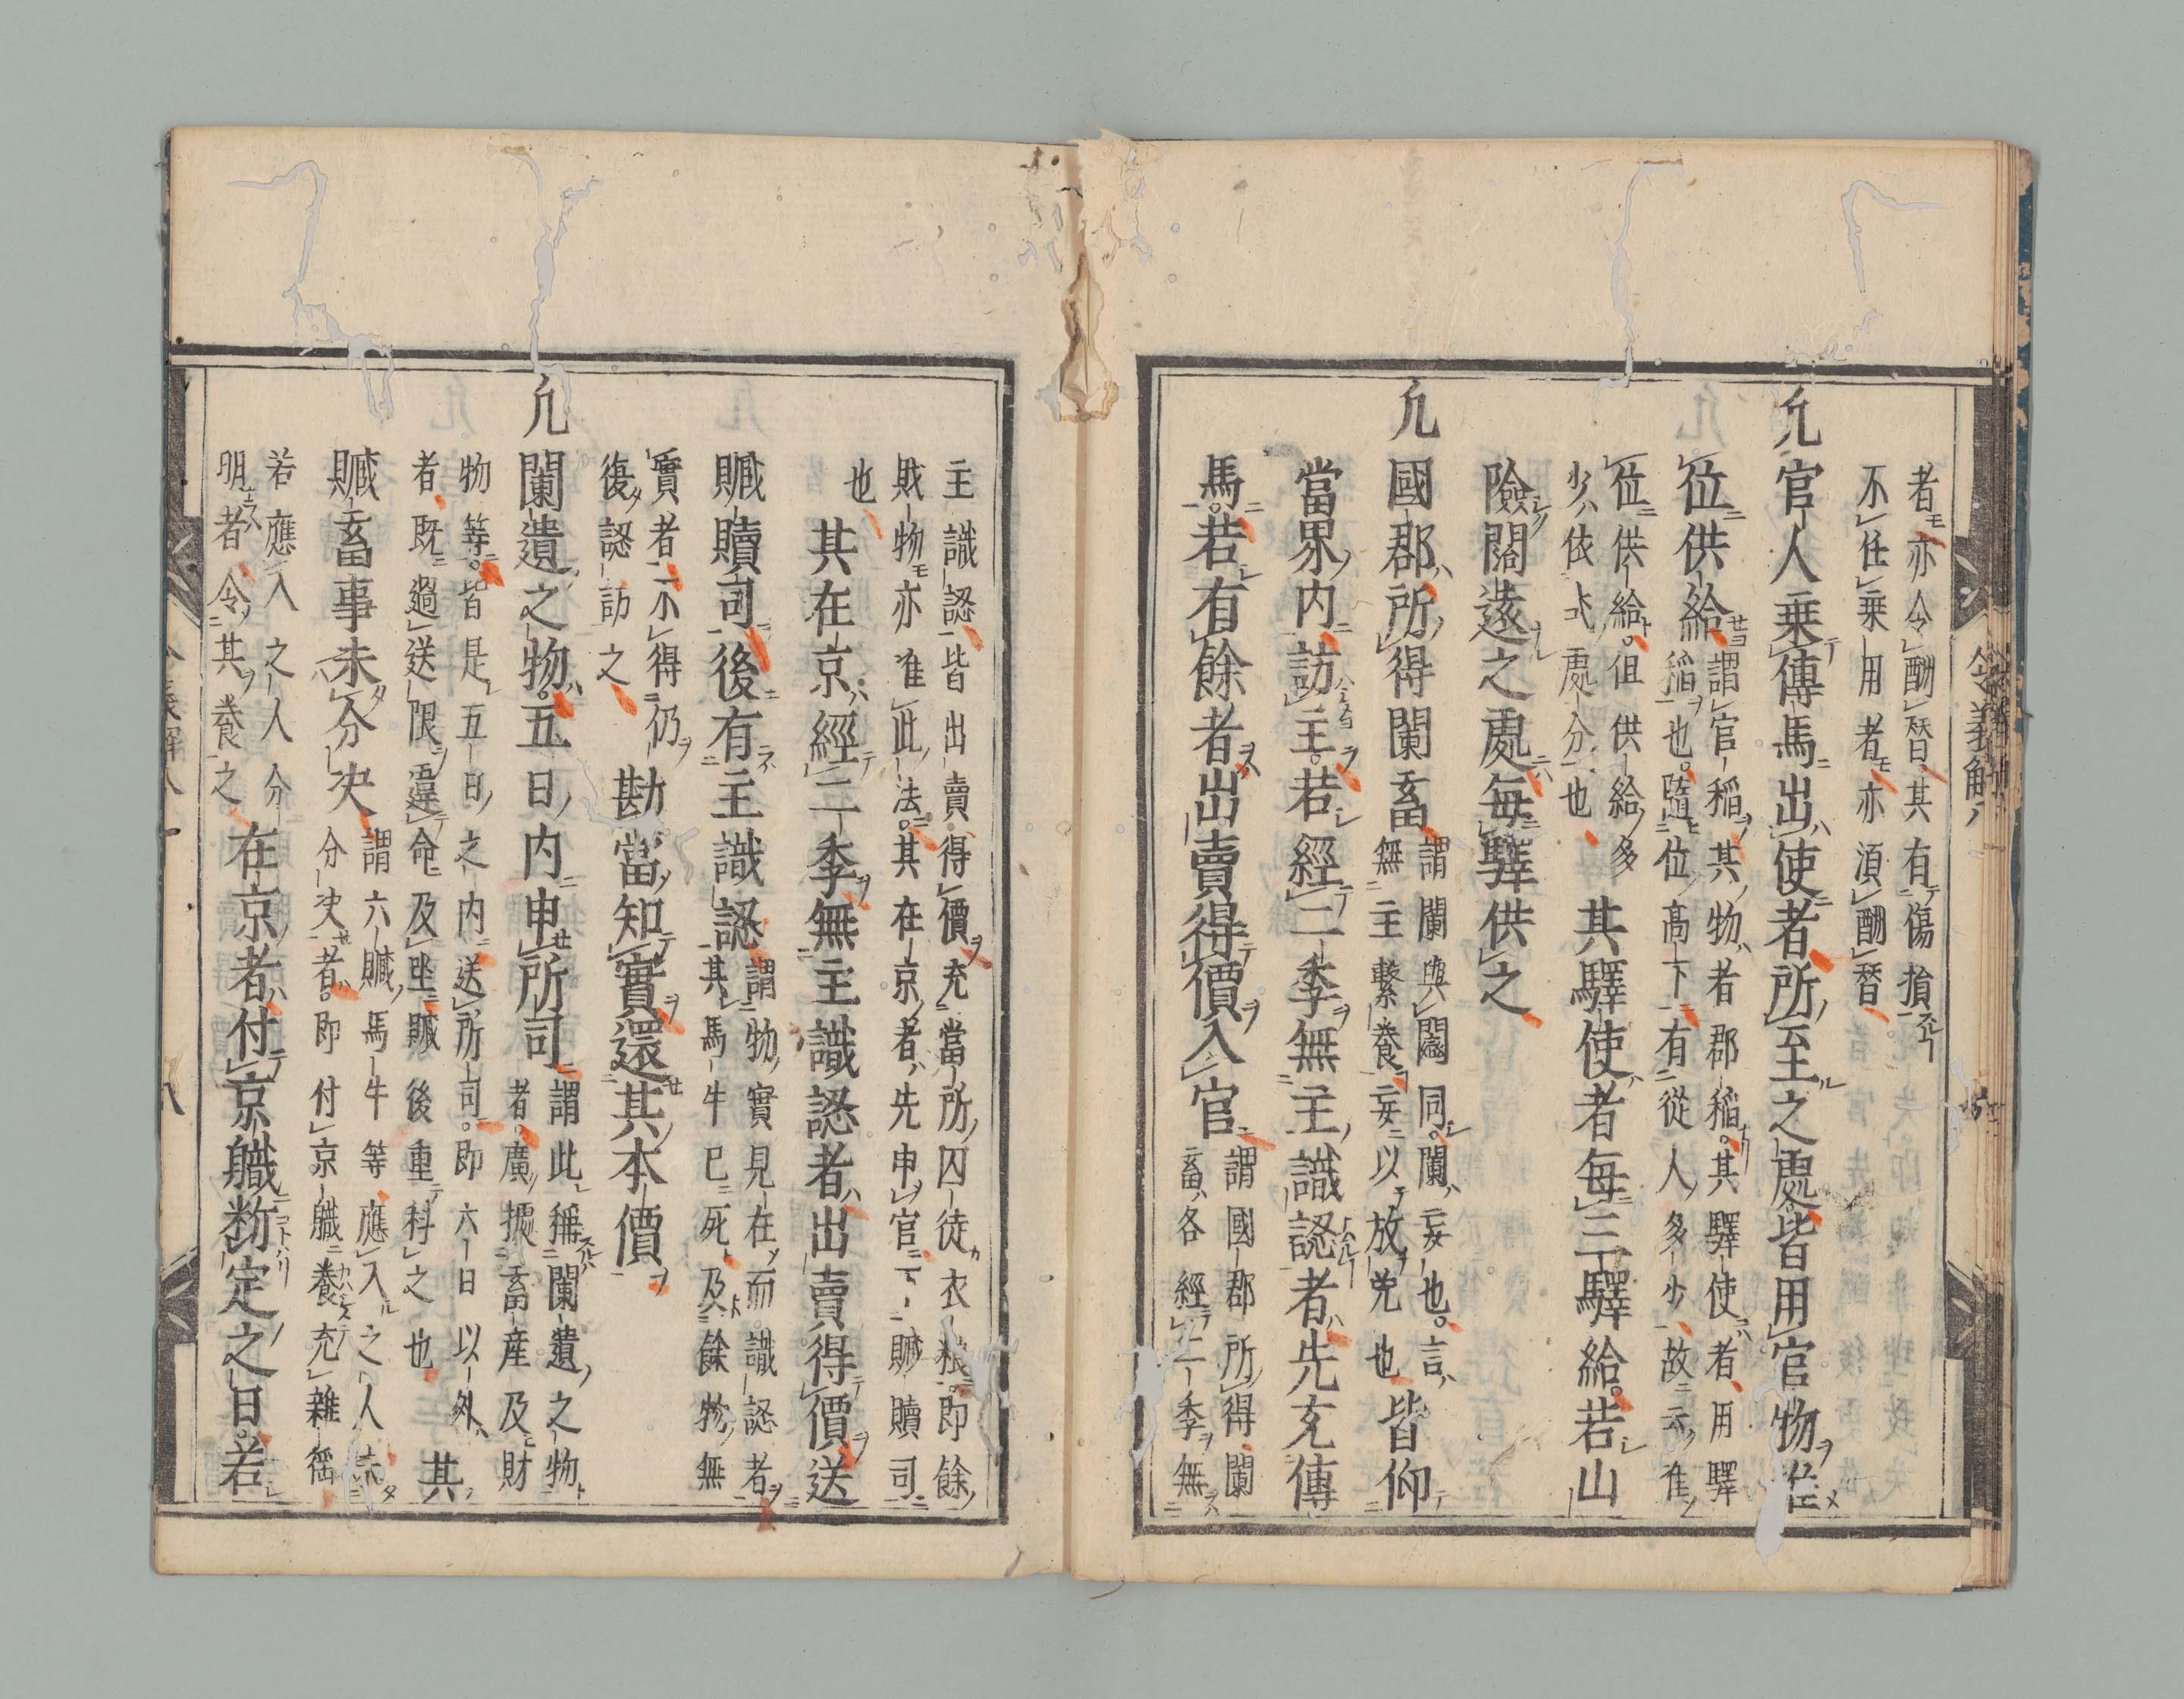 者亦令酬替其有傷損
不任乗用者亦須酬替
凢官人乗傳馬出使者所至之處皆用官物准
位供給
謂官稲其物者郡稲其驛使者用驛
稲也隨位高下有從人多少故云准
位供給但供給多
少依式處分也
其驛使者毎三驛給若山
險闊遠之處毎驛供之
凢國郡所得闌畜
謂闌與闌同闌妄也言
無主繋養妄以放兇也
皆仰
當界内訪主若經二季無主識認者先充傳
馬若有餘者出賣得價入官
謂國郡所得闌
畜各經二季無
主識認皆出賣得價充當所囚徒衣粮即餘
財物亦准此法其在京者先申官下贓贖司
也
其在京經二季無主識認者出賣得價送
贓贖司後有主識認
謂物實見在而識認者
其馬牛已死及餘物無
實者不得仍
復認訪之
勘當知實還其本價
凢闌遺之物五日内申所司
謂此稱闌遺之物
者廣據畜産及財
物等皆是五日之内送所司即六日以外
者既過送限違命及坐贓後重科之也
其
贓畜事未分决
謂六贓馬牛等應入之人未
分决者即付京職養充雜徭
若應入之人分
明者令其養之
在京者付京職断定之日若
令義解八
八